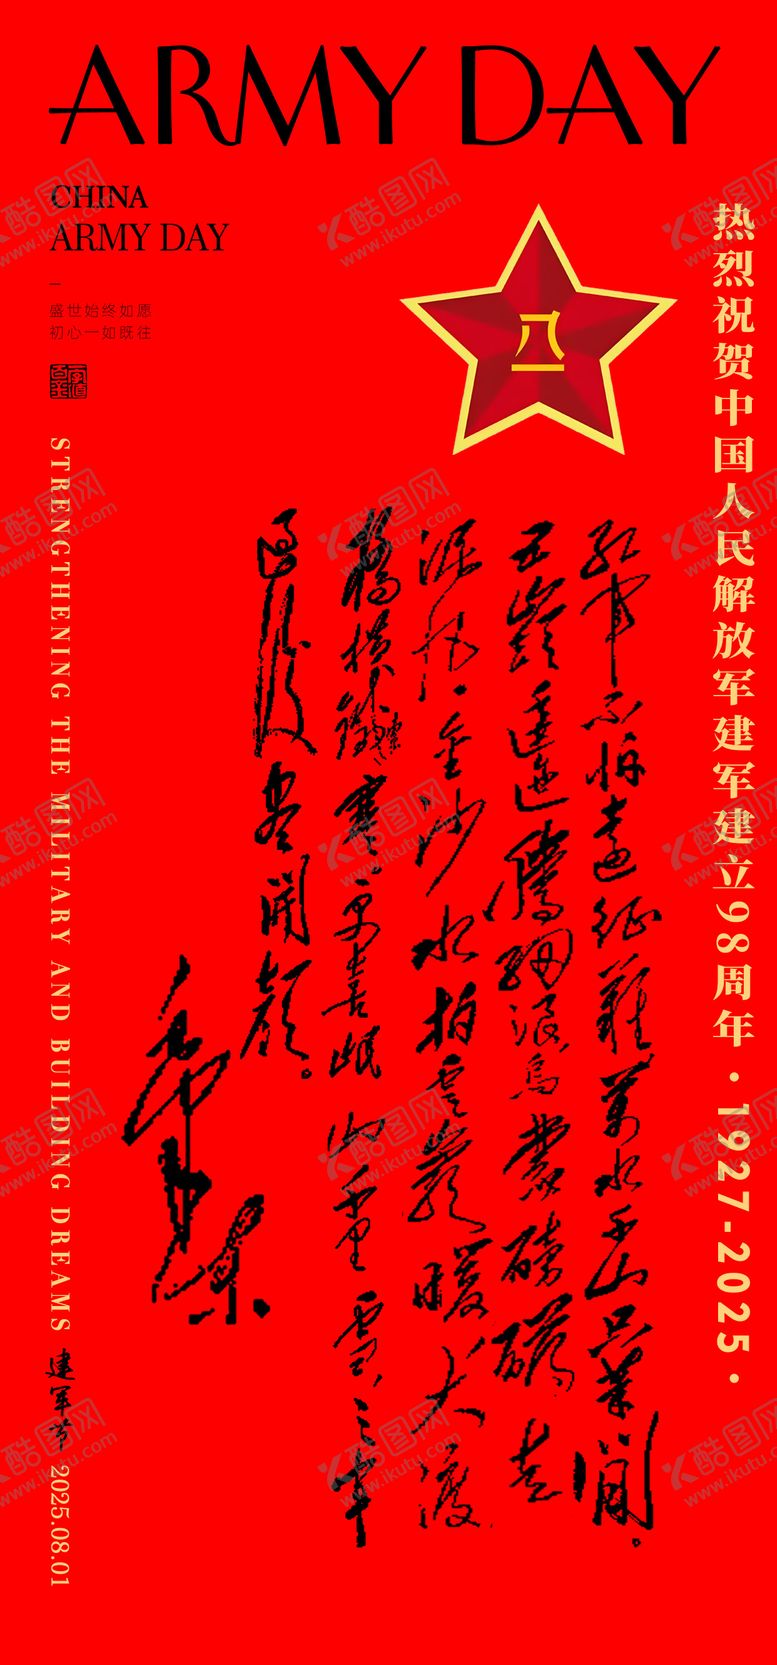 ARMY DAY
CHINA
ARMY DAY
盛世始终如愿
初心一如既往
热烈祝贺中国人民解放军建军建立98周年·1927-2025·
八一
紅軍不怕遠征難萬水千山只等閒。
五嶺逶迤騰細浪烏蒙磅礴走
泥丸。金沙水拍雲崖暖大渡
橋橫鐵索寒。更喜岷山千里雪,三軍
過後盡開顏。
毛澤東
STRENGTHENING THE MILITARY AND BUILDING DREAMS
建军节
2025.08.01
酷图网
www.ikutu.com